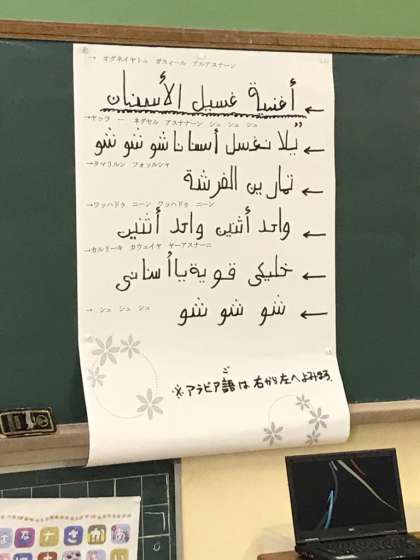 → オグネイヤトュ ガスィール アルアスナーン
أغنية غسيل الأسنان ←
→ヤッラ ー ネグセル アスナナーン シュ シュ シュ
يلا نغسل أسناننا شو شو شو ←
→タマリルン フォッルシャ
تمارين الفرشة ←
→ワッハドゥ ニーン ワッハドゥ ニーン
واحد أثنين واحد أثنين ←
→カルリーキ カウェイヤ ヤーアスナーニ
خليكي قوية يا أسناني ←
→ シュ シュ シュ
شو شو شو ←
※アラビア語は右から左へよみます。
ご